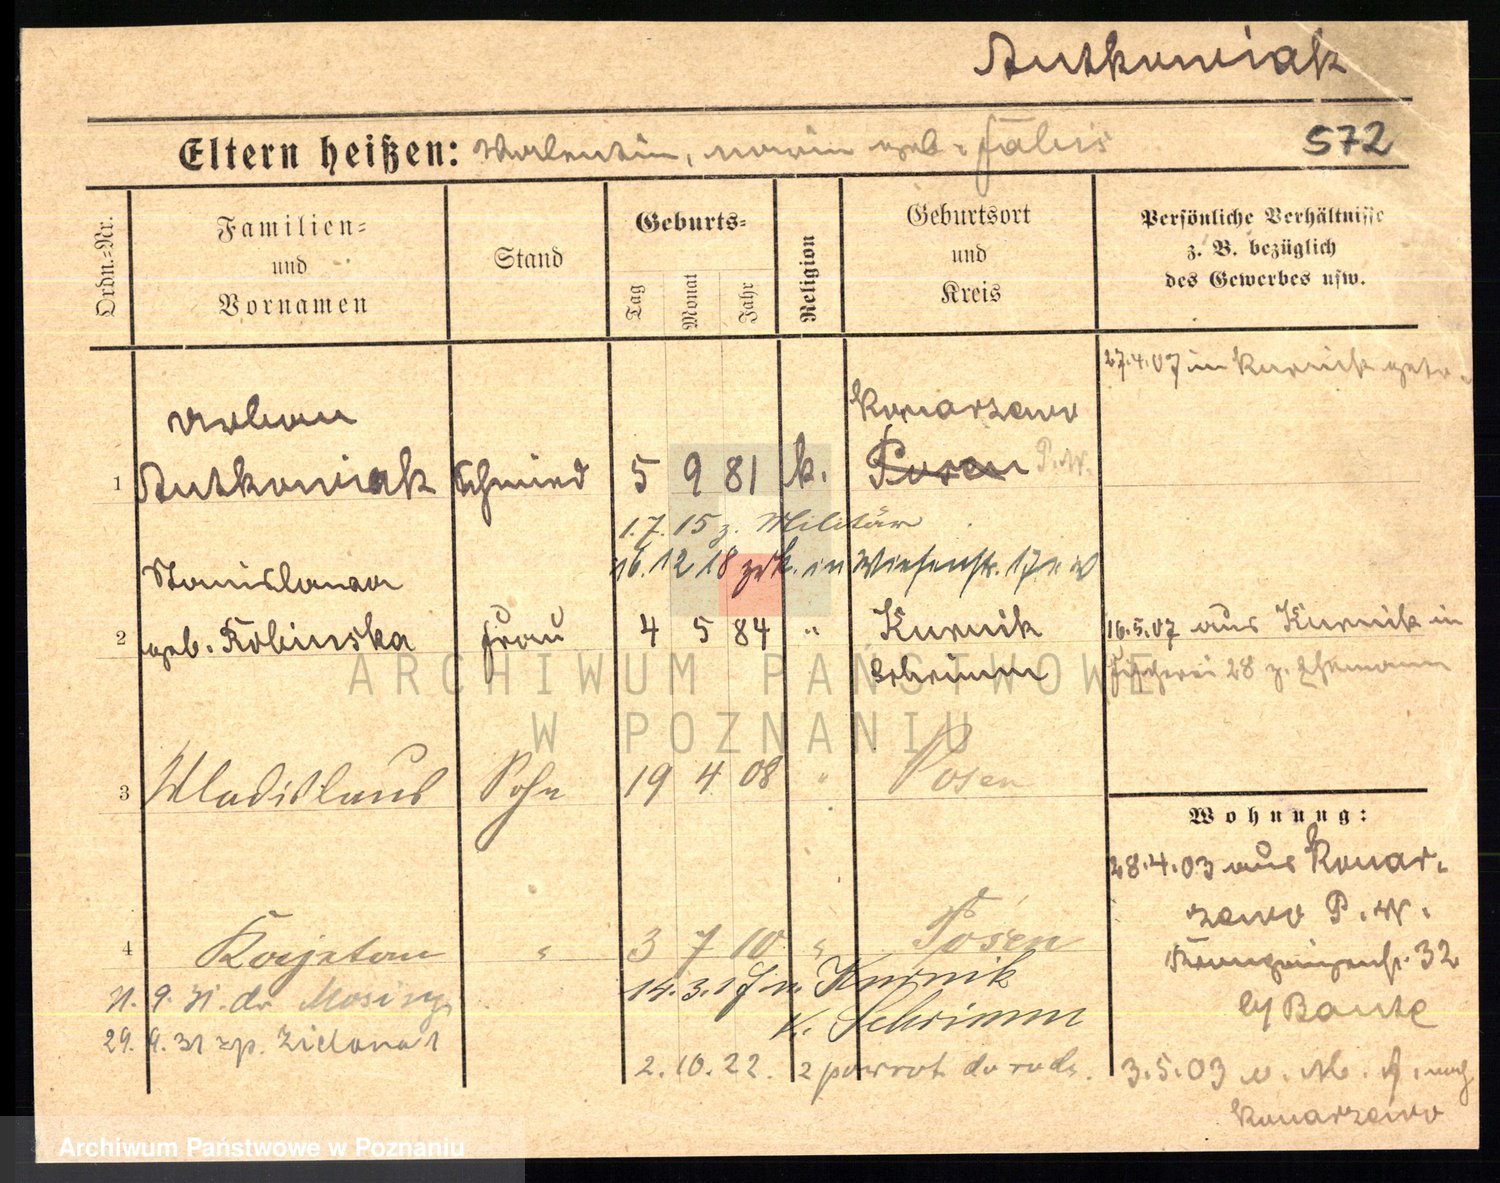 Antkowiak
Eltern heißen: Valentin, Maria geb. Fabis
572
Ordn.-Nr.
Familien-
und
Vornamen
Stand
Geburts-
Tag
Monat
Jahr
Religion
Geburtsort
und
Kreis
Persönliche Verhältnisse
z. B. bezüglich
des Gewerbes usw.
27.4.07 in Kurnik getr.
Urban
Konarzewo
1 Antkowiak Schmied 5 9 81 k. Posen P.W.
1.7.15 z. Militär
16.12.18 zrk. in Wiesenstr. 17
Stanislawa
2 geb. Robinska Frau 4 5 84 " Kurnik
Schrimm
16.5.07 aus Kurnik in
Fischerei 28 z. Ehemann
3 Wladislaus Sohn 19 4 08 " Posen
Wohnung:
28.4.03 aus Konar-
zewo P.W.
Kronprinzenstr. 32
by
4 Kajetan " 3 7 10 " Posen
14.3.17 n. Kurnik
K. Schrimm
21.9.31 do Mosiny
29.9.31 zp. Zielona 1
2.10.22. z powrot do rodz.
3.5.03 v. M. A. nach
Konarzewo
ARCHIWUM PAŃSTWOWE
W POZNANIU
Archiwum Państwowe w Poznaniu